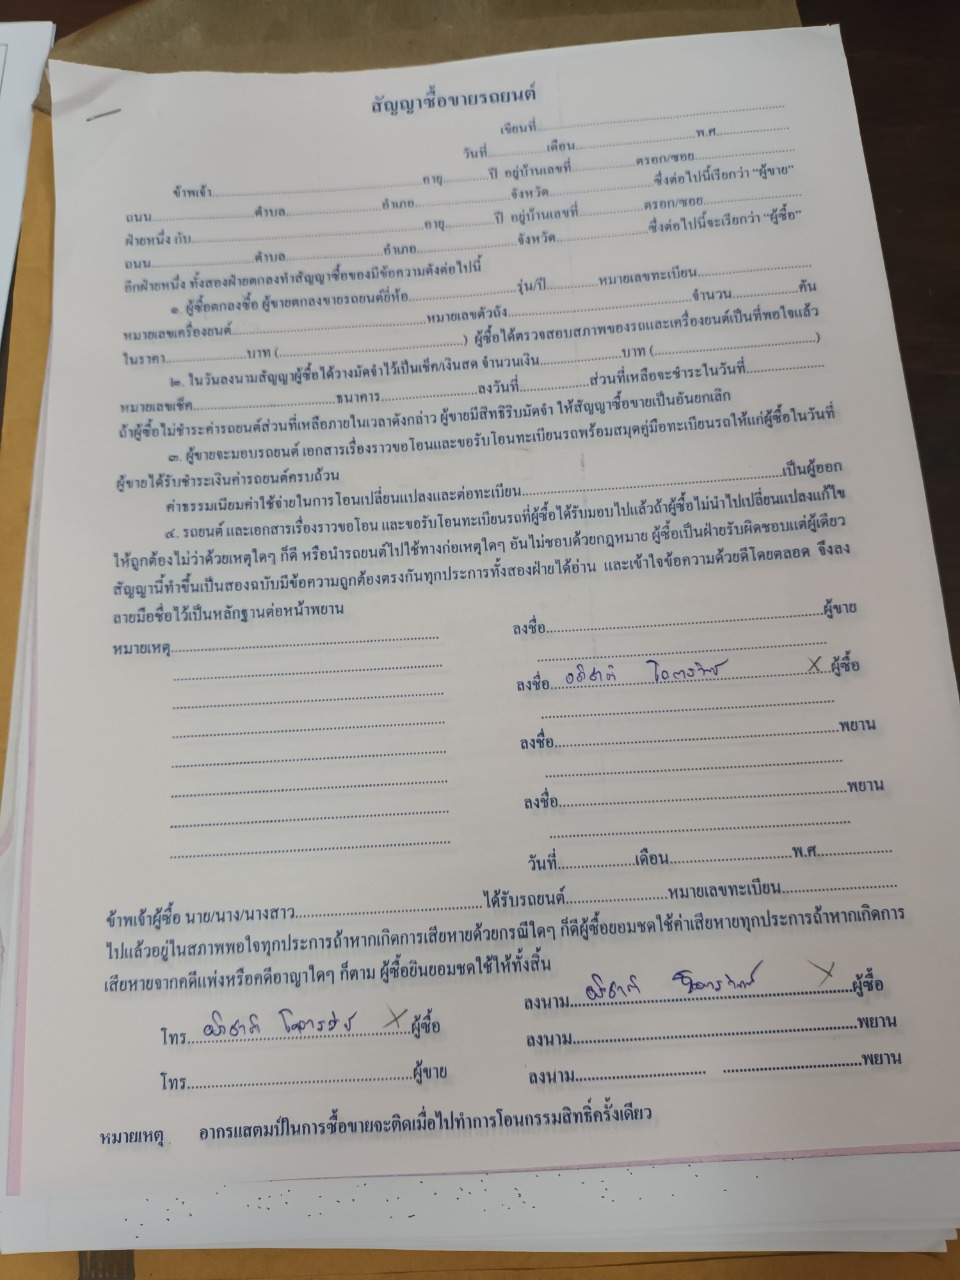 สัญญาซื้อขายรถยนต์
เขียนที่................................................................
วันที่...............เดือน..............................พ.ศ...................
ข้าพเจ้า......................................................อายุ............ปี อยู่บ้านเลขที่.................ตรอก/ซอย..........................
ถนน..........................ตำบล.........................อำเภอ.........................จังหวัด...........................ซึ่งต่อไปนี้เรียกว่า “ผู้ขาย”
ฝ่ายหนึ่ง กับ............................................................อายุ.............ปี อยู่บ้านเลขที่.................ตรอก/ซอย..........................
ถนน..........................ตำบล.........................อำเภอ..........................จังหวัด........................ซึ่งต่อไปนี้จะเรียกว่า “ผู้ซื้อ”
อีกฝ่ายหนึ่ง ทั้งสองฝ่ายตกลงทำสัญญาซื้อของมีข้อความดังต่อไปนี้
๑. ผู้ซื้อตกลงซื้อ ผู้ขายตกลงขายรถยนต์ยี่ห้อ...........................รุ่น/ปี..............หมายเลขทะเบียน..............................
หมายเลขเครื่องยนต์....................................................หมายเลขตัวถัง................................................จำนวน.................คัน
ในราคา.....................บาท (..................................................) ผู้ซื้อได้ตรวจสอบสภาพของรถและเครื่องยนต์เป็นที่พอใจแล้ว
๒. ในวันลงนามสัญญาผู้ซื้อได้วางมัดจำไว้เป็นเช็ค/เงินสด จำนวนเงิน......................บาท (...........................................)
หมายเลขเช็ค......................................ธนาคาร.........................ลงวันที่...................ส่วนที่เหลือจะชำระในวันที่.....................
ถ้าผู้ซื้อไม่ชำระค่ารถยนต์ส่วนที่เหลือภายในเวลาดังกล่าว ผู้ขายมีสิทธิริบมัดจำ ให้สัญญาซื้อขายเป็นอันยกเลิก
๓. ผู้ขายจะมอบรถยนต์ เอกสารเรื่องราวขอโอนและขอรับโอนทะเบียนรถพร้อมสมุดคู่มือทะเบียนรถให้แก่ผู้ซื้อในวันที่
ผู้ขายได้รับชำระเงินค่ารถยนต์ครบถ้วน
ค่าธรรมเนียมค่าใช้จ่ายในการโอนเปลี่ยนแปลงและต่อทะเบียน.....................................................................เป็นผู้ออก
๔. รถยนต์ และเอกสารเรื่องราวขอโอน และขอรับโอนทะเบียนรถที่ผู้ซื้อได้รับมอบไปแล้วถ้าผู้ซื้อไม่นำไปเปลี่ยนแปลงแก้ไข
ให้ถูกต้องไม่ว่าด้วยเหตุใดๆ ก็ดี หรือนำรถยนต์ไปใช้ทางก่อเหตุใดๆ อันไม่ชอบด้วยกฎหมาย ผู้ซื้อเป็นฝ่ายรับผิดชอบแต่ผู้เดียว
สัญญานี้ทำขึ้นเป็นสองฉบับมีข้อความถูกต้องตรงกันทุกประการทั้งสองฝ่ายได้อ่าน และเข้าใจข้อความด้วยดีโดยตลอด จึงลง
ลายมือชื่อไว้เป็นหลักฐานต่อหน้าพยาน
หมายเหตุ..............................................................
ลงชื่อ................................................................ผู้ขาย
ลงชื่อ.................................................X ผู้ซื้อ
ลงชื่อ................................................................พยาน
ลงชื่อ................................................................พยาน
วันที่...................เดือน..............................พ.ศ...................
ข้าพเจ้าผู้ซื้อ นาย/นาง/นางสาว...........................................ได้รับรถยนต์.......................หมายเลขทะเบียน..........................
ไปแล้วอยู่ในสภาพพอใจทุกประการถ้าหากเกิดการเสียหายด้วยกรณีใดๆ ก็ดีผู้ซื้อยอมชดใช้ค่าเสียหายทุกประการถ้าหากเกิดการ
เสียหายจากคดีแพ่งหรือคดีอาญาใดๆ ก็ตาม ผู้ซื้อยินยอมชดใช้ให้ทั้งสิ้น
ลงนาม..................................................X ผู้ซื้อ
โทร..................................................X ผู้ซื้อ
ลงนาม................................................................พยาน
โทร..................................................ผู้ขาย
ลงนาม.............................. ................................พยาน
หมายเหตุ อากรแสตมป์ในการซื้อขายจะติดเมื่อไปทำการโอนกรรมสิทธิ์ครั้งเดียว